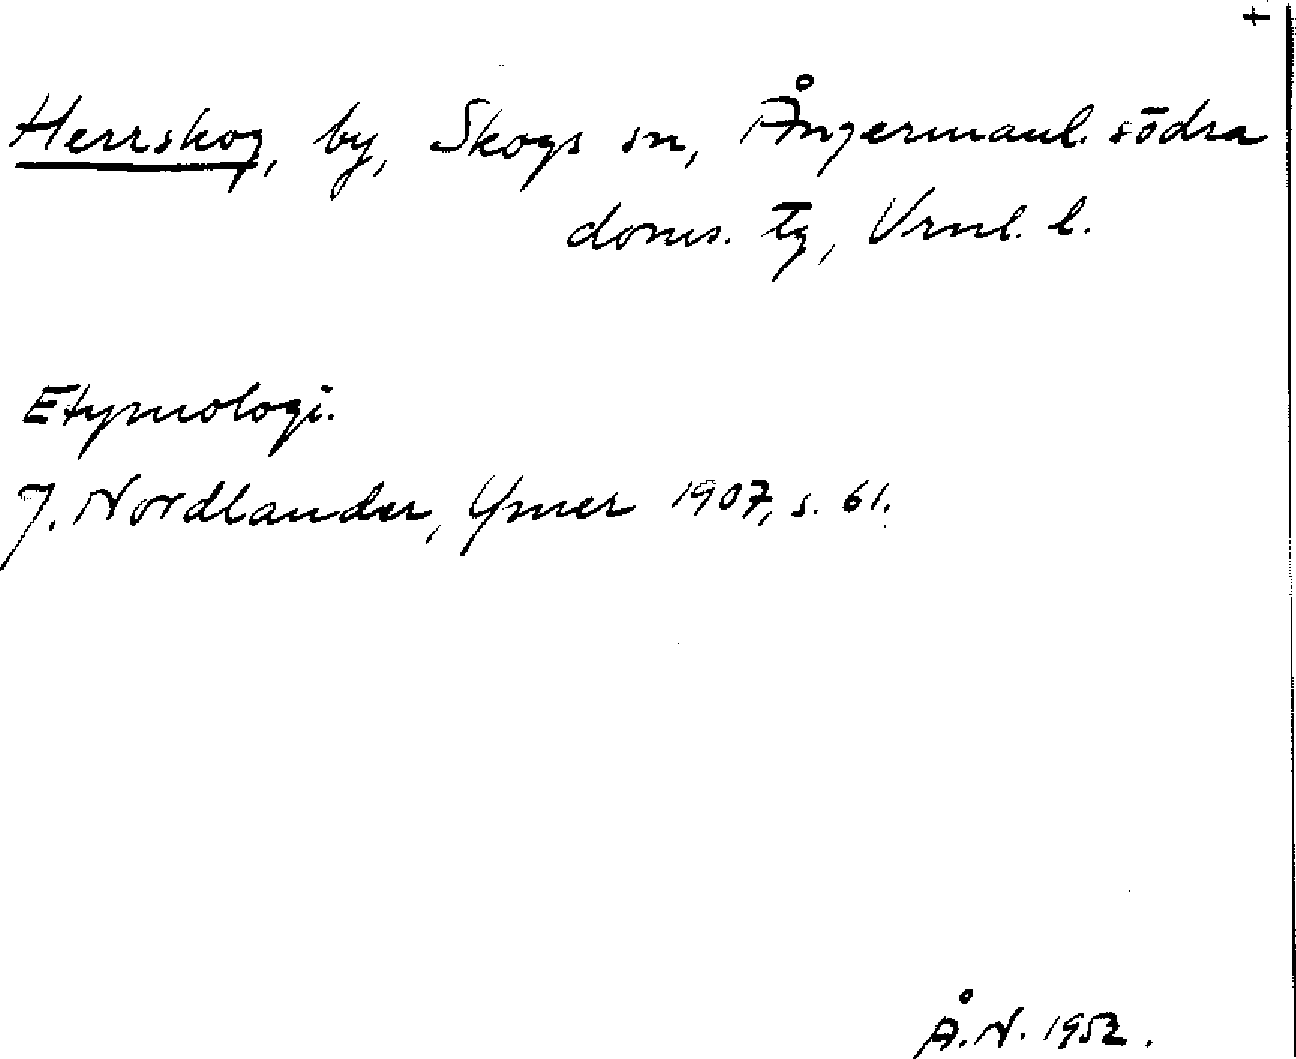 Herrskog, by, Skogs sn, Ångermanl. södra
doms. tg, Vrnl. l.
Etymologi.
J. Nordlander, Ymer 1907, s. 61.
Å. N. 1952.